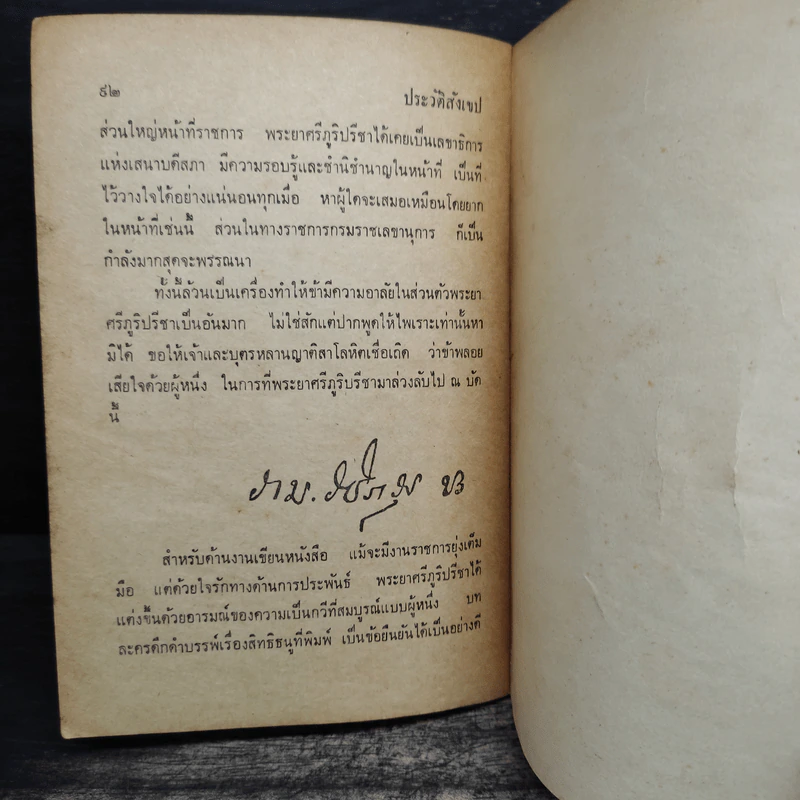 ๙๒
ประวัติสังเขป
ส่วนใหญ่หน้าที่ราชการ พระยาศรีภูริปรีชาได้เคยเป็นเลขาธิการ
แห่งเสนาบดีสภา มีความรอบรู้และชำนิชำนาญในหน้าที่ เป็นที่
ไว้วางใจได้อย่างแน่นอนทุกเมื่อ หาผู้ใดจะเสมอเหมือนโดยยาก
ในหน้าที่เช่นนี้ ส่วนในทางราชการกรมราชเลขานุการ ก็เป็น
กำลังมากสุดจะพรรณนา
ทั้งนี้ล้วนเป็นเครื่องทำให้ข้ามีความอาลัยในส่วนตัวพระยา
ศรีภูริปรีชาเป็นอันมาก ไม่ใช่สักแต่ปากพูดให้ไพเราะเท่านั้นหา
มิได้ ขอให้เจ้าและบุตรหลานญาติสาโลหิตเชื่อเถิด ว่าข้าพลอย
เสียใจด้วยผู้หนึ่ง ในการที่พระยาศรีภูริปรีชามาล่วงลับไป ณ บัด
นี้
สำหรับด้านงานเขียนหนังสือ แม้จะมีงานราชการยุ่งเต็ม
มือ แต่ด้วยใจรักทางด้านการประพันธ์ พระยาศรีภูริปรีชาได้
แต่งขึ้นด้วยอารมณ์ของความเป็นกวีที่สมบูรณ์แบบผู้หนึ่ง บท
ละครดึกดำบรรพ์เรื่องสิทธิธนูที่พิมพ์ เป็นข้อยืนยันได้เป็นอย่างดี